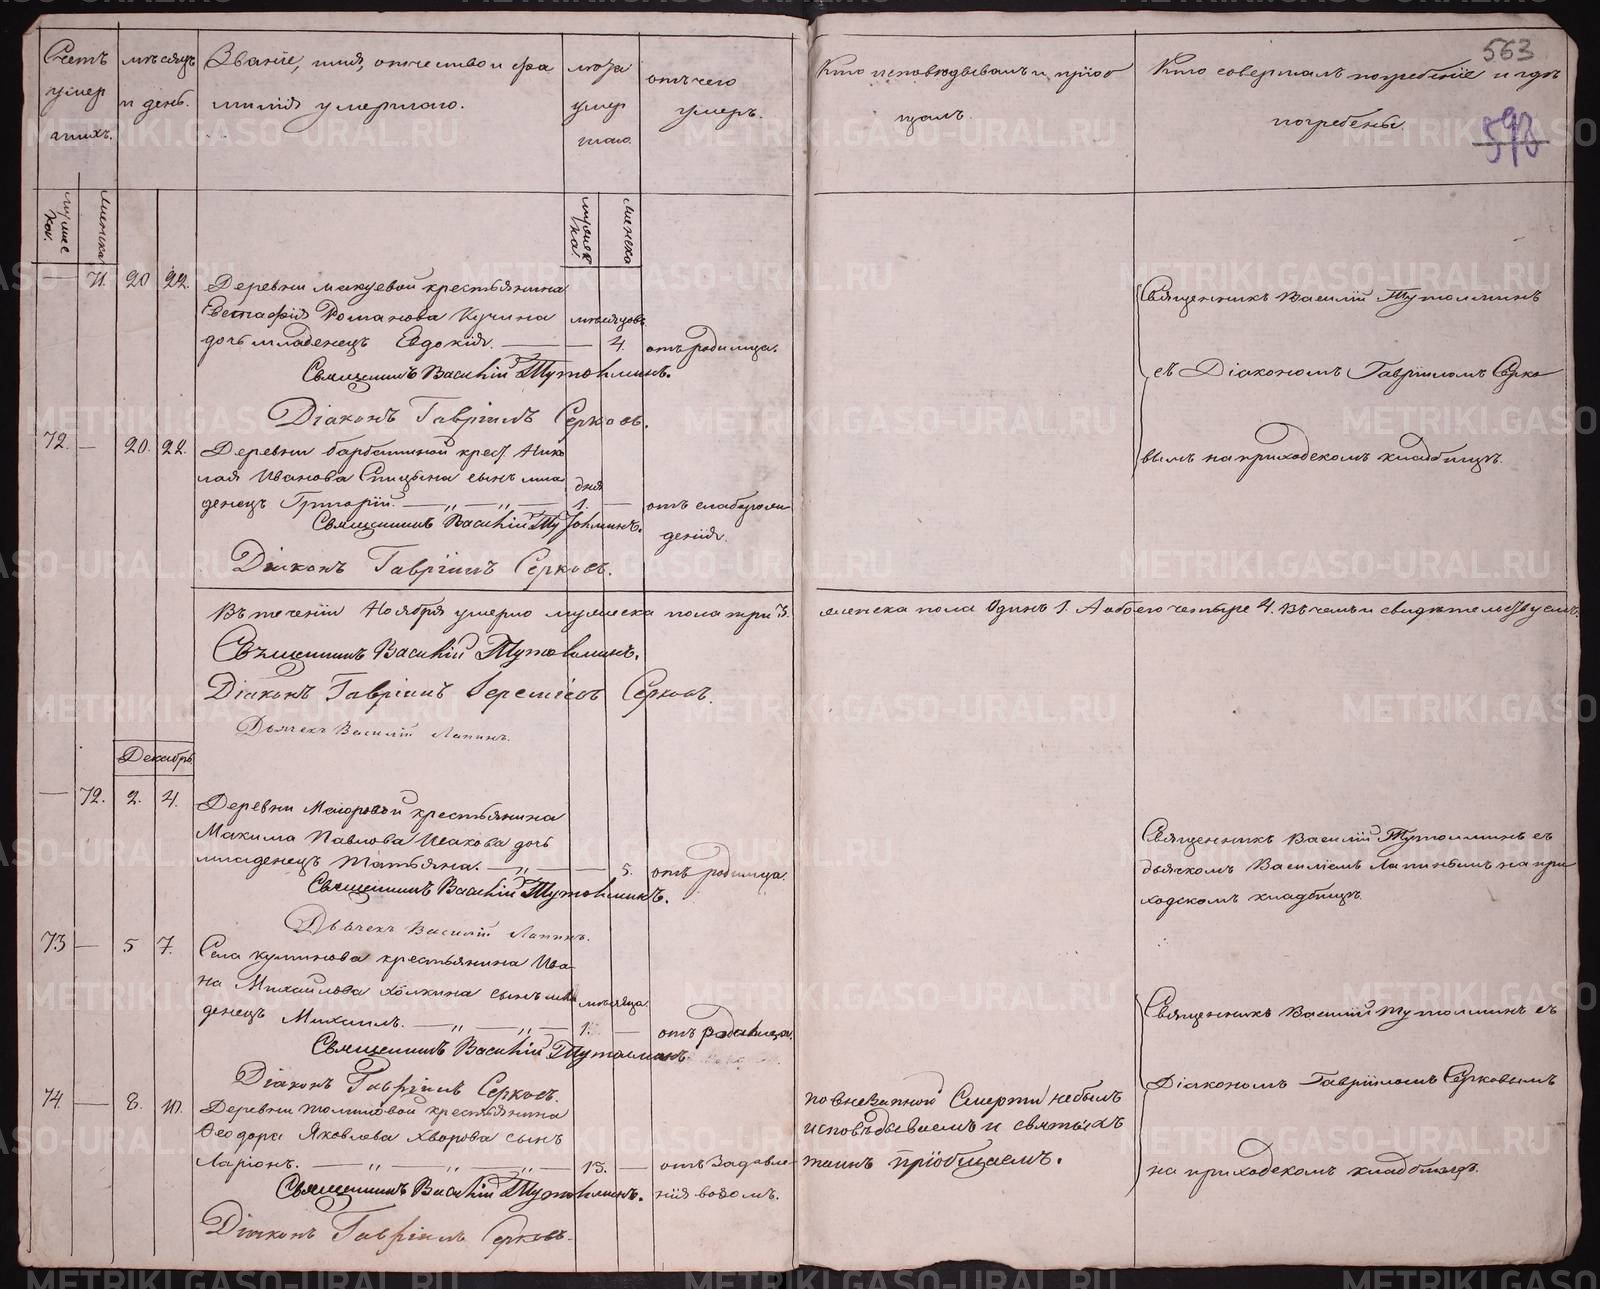 563
596
Счетъ умер шихъ.
мѣсяцъ и день.
Званіе, имя, отчество и фа
милія умершаго.
лѣта умер шаго.
отъ чего умеръ.
Кто исповѣдывалъ и пріоб
щалъ.
Кто совершалъ погребеніе и гдѣ
погребены.
мужес ков.
женска
мужеск ка.
женско
— 71. 20 22. Деревни крестьянина
Евстафія Романова Кучина
мѣсяцовъ
дочь младенецъ Евдокія. — — 4. отъ родимца.
Священникъ Василій Тутолминъ.
Діаконъ Гавріилъ Серковъ.
Священникъ Василій Тутолминъ
съ Діакономъ Гавріиломъ Серко
вымъ на приходскомъ кладбищѣ.
72. — 20. 22. Деревни крест. Нико
лая Иванова Спицына сынъ мла
дня
денецъ Григорій. — „ — „ — 1. — отъ слаборож
денія.
Священникъ Василій Тутолминъ.
Діаконъ Гавріилъ Серковъ.
Въ теченіи Ноября умерло мужеска пола три 3. женска пола Одинъ 1. А обоего четыре 4. Въ чемъ и свидѣтельствуемъ.
Священникъ Василій Тутолминъ.
Діаконъ Гавріилъ Серковъ.
Дьячекъ Василій Лапинъ.
Декабрь
— 72. 2. 4. Деревни Маіоровой крестьянина
Максима Павлова Исакова дочь
младенецъ Татьяна. — „ — — 5. отъ родимца.
Священникъ Василій Тутолминъ.
Дьячекъ Василій Лапинъ.
Священникъ Василій Тутолминъ съ
дьячкомъ Василіемъ Лапинымъ на при
ходскомъ кладбищѣ.
73 — 5 7. Села крестьянина Ива
на Михайлова Хілкина сынъ мла
мѣсяца
денецъ Михаилъ. — „ — „ — 1. — отъ родимца.
Священникъ Василій Тутолминъ
Діаконъ Гавріилъ Серковъ.
Священникъ Василій Тутолминъ съ
Діакономъ Гавріиломъ Серковымъ
на приходскомъ кладбищѣ.
74. — 8. 10. Деревни крестьянина
Ѳеодора Яковлева Хворова сынъ
Ларіонъ. — „ — „ — „ — 15. — отъ задавле
нія возомъ.
Священникъ Василій Тутолминъ.
Діаконъ Гавріилъ Серковъ.
по внезапной Смерти небылъ
исповѣдываемъ и святыхъ
таинъ пріобщаемъ.
METRIKI.GASO-URAL.RU